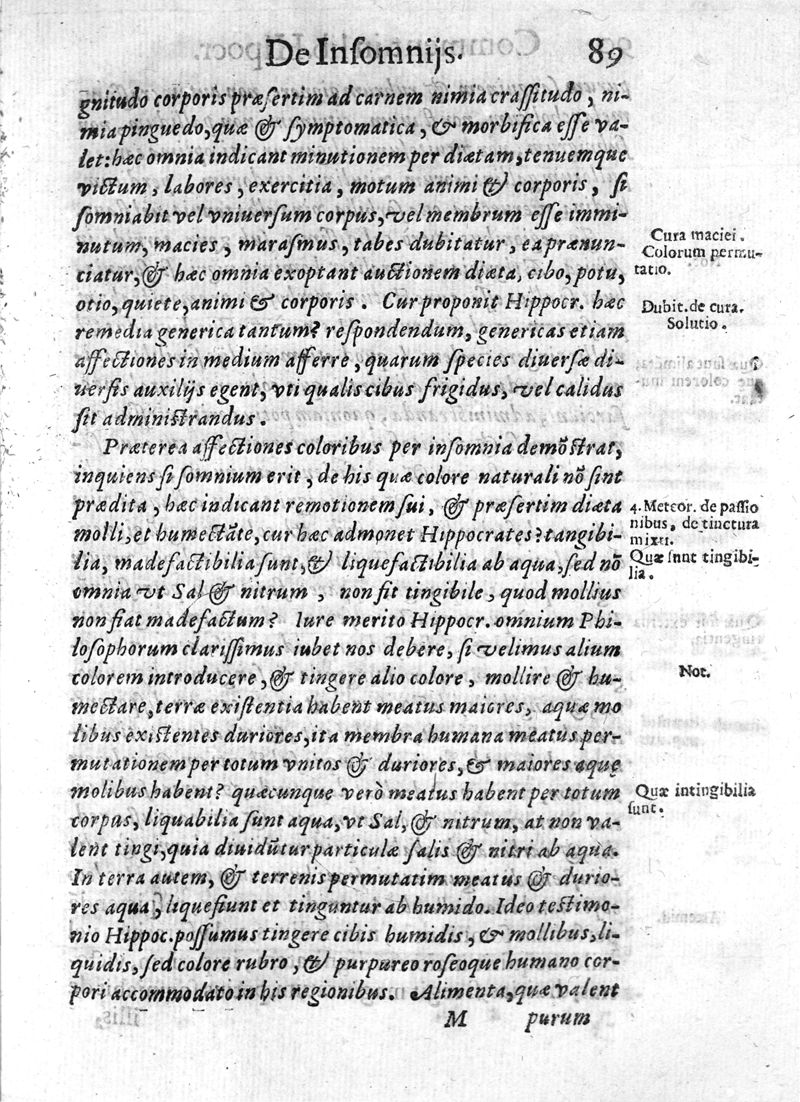 De Inſomnijs. 89
gnitudo corporis præſertim ad carnem nimia craſſitudo, ni-
mia pinguedo, quæ & ſymptomatica, & morbifica eſſe va-
let: hæc omnia indicant minutionem per diætam, tenuemque
victum, labores, exercitia, motum animi & corporis, ſi
ſomniabit vel vniuerſum corpus, vel membrum eſſe immi-
nutum, macies, maraſmus, tabes dubitatur, ea prænun-
ciatur, & hæc omnia exoptant auctionem diæta, cibo, potu,
otio, quiete, animi & corporis. Cur proponit Hippocr. hæc
remedia generica tantum? reſpondendum, genericas etiam
affectiones in medium afferre, quarum ſpecies diuerſæ di-
uerſis auxilijs egent, vti qualis cibus frigidus, vel calidus
ſit adminiſtrandus.
Præterea affectiones coloribus per inſomnia demõſtrat,
inquiens ſi ſomnium erit, de his quæ colore naturali nõ ſint
prædita, hæc indicant remotionem ſui, & præſertim diæta
molli, et humectãte, cur hæc admonet Hippocrates? tangibi-
lia, madefactibilia ſunt, & liquefactibilia ab aqua, ſed nõ
omnia vt Sal & nitrum, non fit tingibile, quod mollius
non fiat madefactum? Iure merito Hippocr. omnium Phi-
loſophorum clariſſimus iubet nos debere, ſi velimus alium
colorem introducere, & tingere alio colore, mollire & hu-
mectare, terræ exiſtentia habent meatus maiores, aquæ mo
libus exiſtentes duriores, ita membra humana meatus per-
mutationem per totum vnitos & duriores, & maiores aquę
molibus habent? quæcunque verò meatus habent per totum
corpus, liquabilia ſunt aqua, vt Sal, & nitrum, at non va-
lent tingi, quia diuidũtur particulæ ſalis & nitri ab aqua.
In terra autem, & terrenis permutatim meatus & durio-
res aqua, liquefiunt et tinguntur ab humido. Ideo teſtimo-
nio Hippoc. poſſumus tingere cibis humidis, & mollibus, li-
quidis, ſed colore rubro, & purpureo roſeoque humano cor-
pori accommodato in his regionibus. Alimenta, quæ valent
M purum
Cura maciei.
Colorum permu-
tatio.
Dubit. de cura.
Solutio.
4. Meteor. de paſſio
nibus, de tinctura
mixti.
Quæ ſunt tingibi-
lia.
Not.
Quæ intingibilia
ſunt.